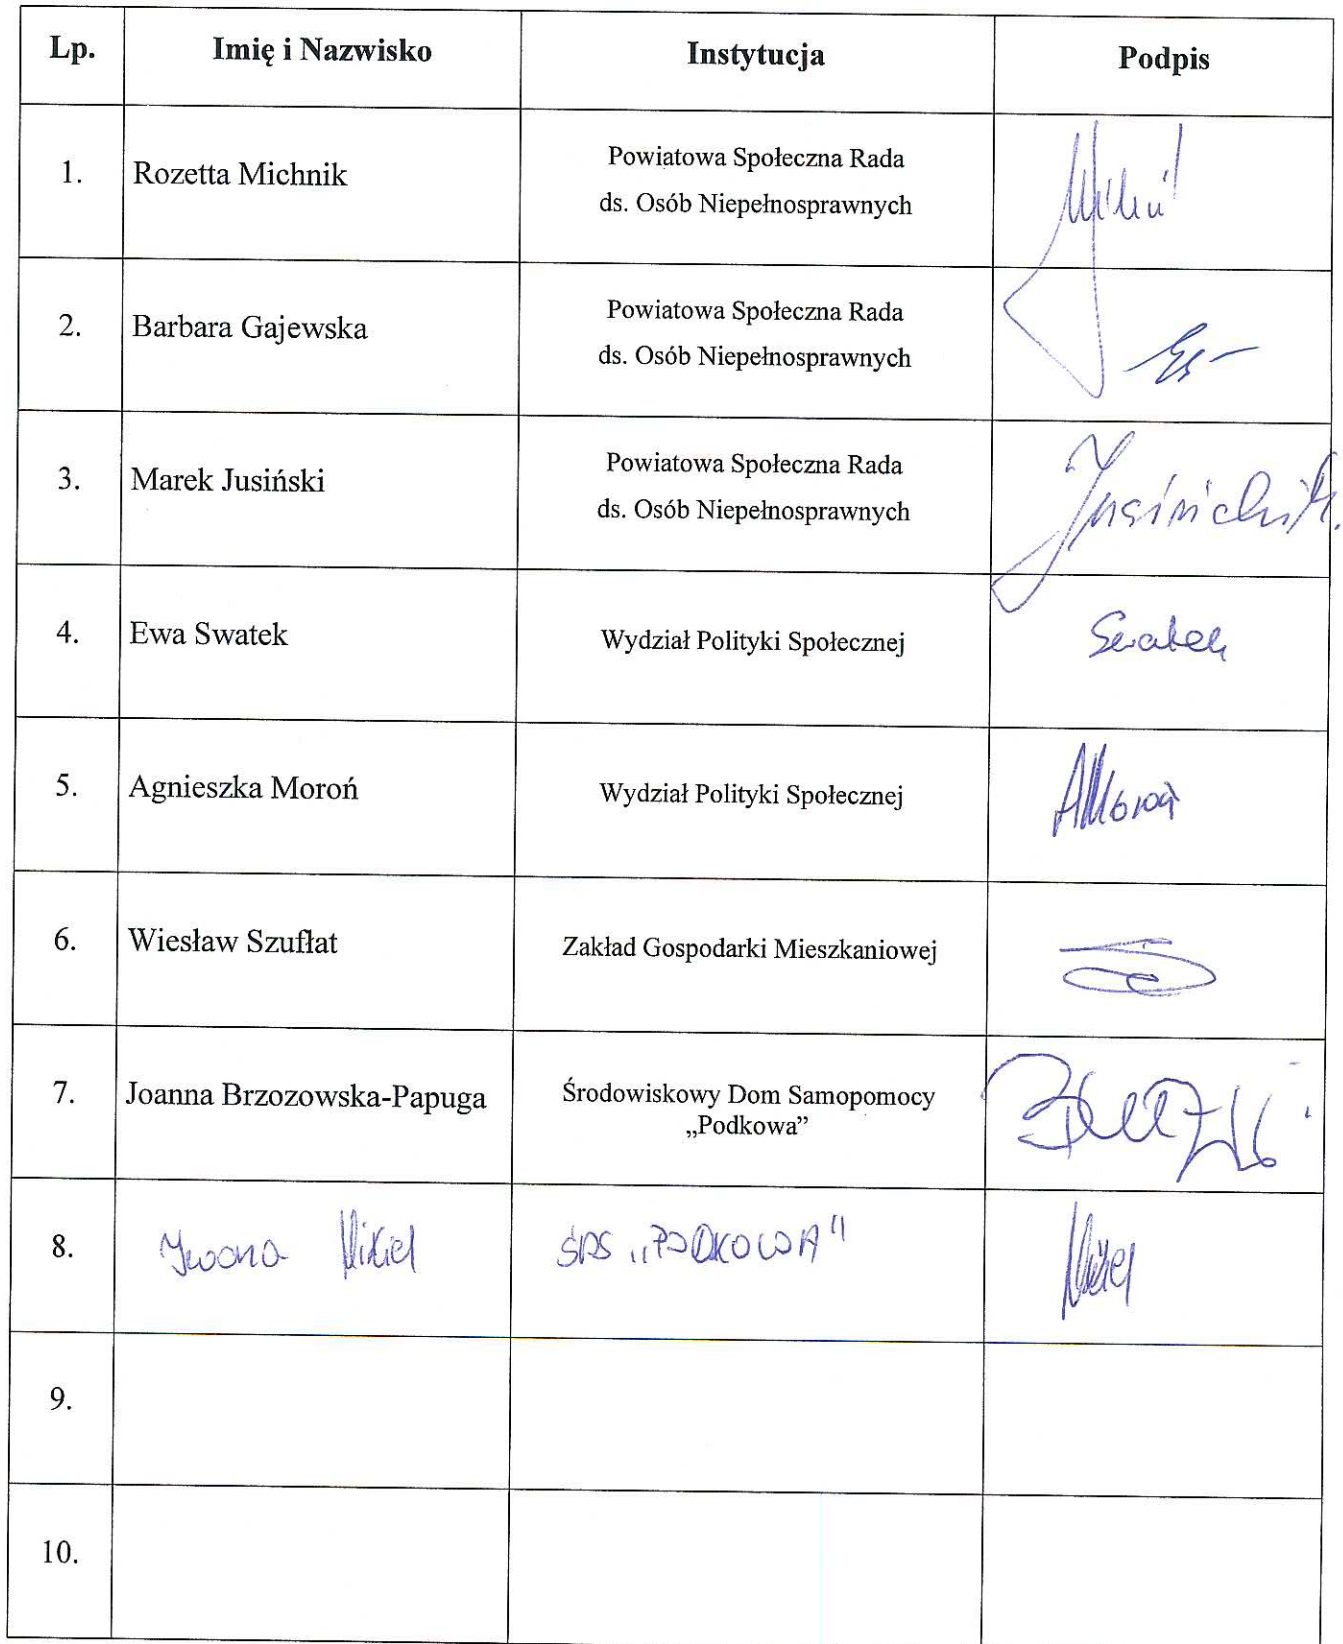 Lp. Imię i Nazwisko Instytucja Podpis
1. Rozetta Michnik Powiatowa Społeczna Rada
ds. Osób Niepełnosprawnych
2. Barbara Gajewska Powiatowa Społeczna Rada
ds. Osób Niepełnosprawnych
3. Marek Jusiński Powiatowa Społeczna Rada
ds. Osób Niepełnosprawnych
4. Ewa Swatek Wydział Polityki Społecznej Swatek
5. Agnieszka Moroń Wydział Polityki Społecznej AMoroń
6. Wiesław Szufłat Zakład Gospodarki Mieszkaniowej
7. Joanna Brzozowska-Papuga Środowiskowy Dom Samopomocy
„Podkowa”
8. Iwona Mikiel ŚDS „PODKOWA" Mikiel
9.
10.